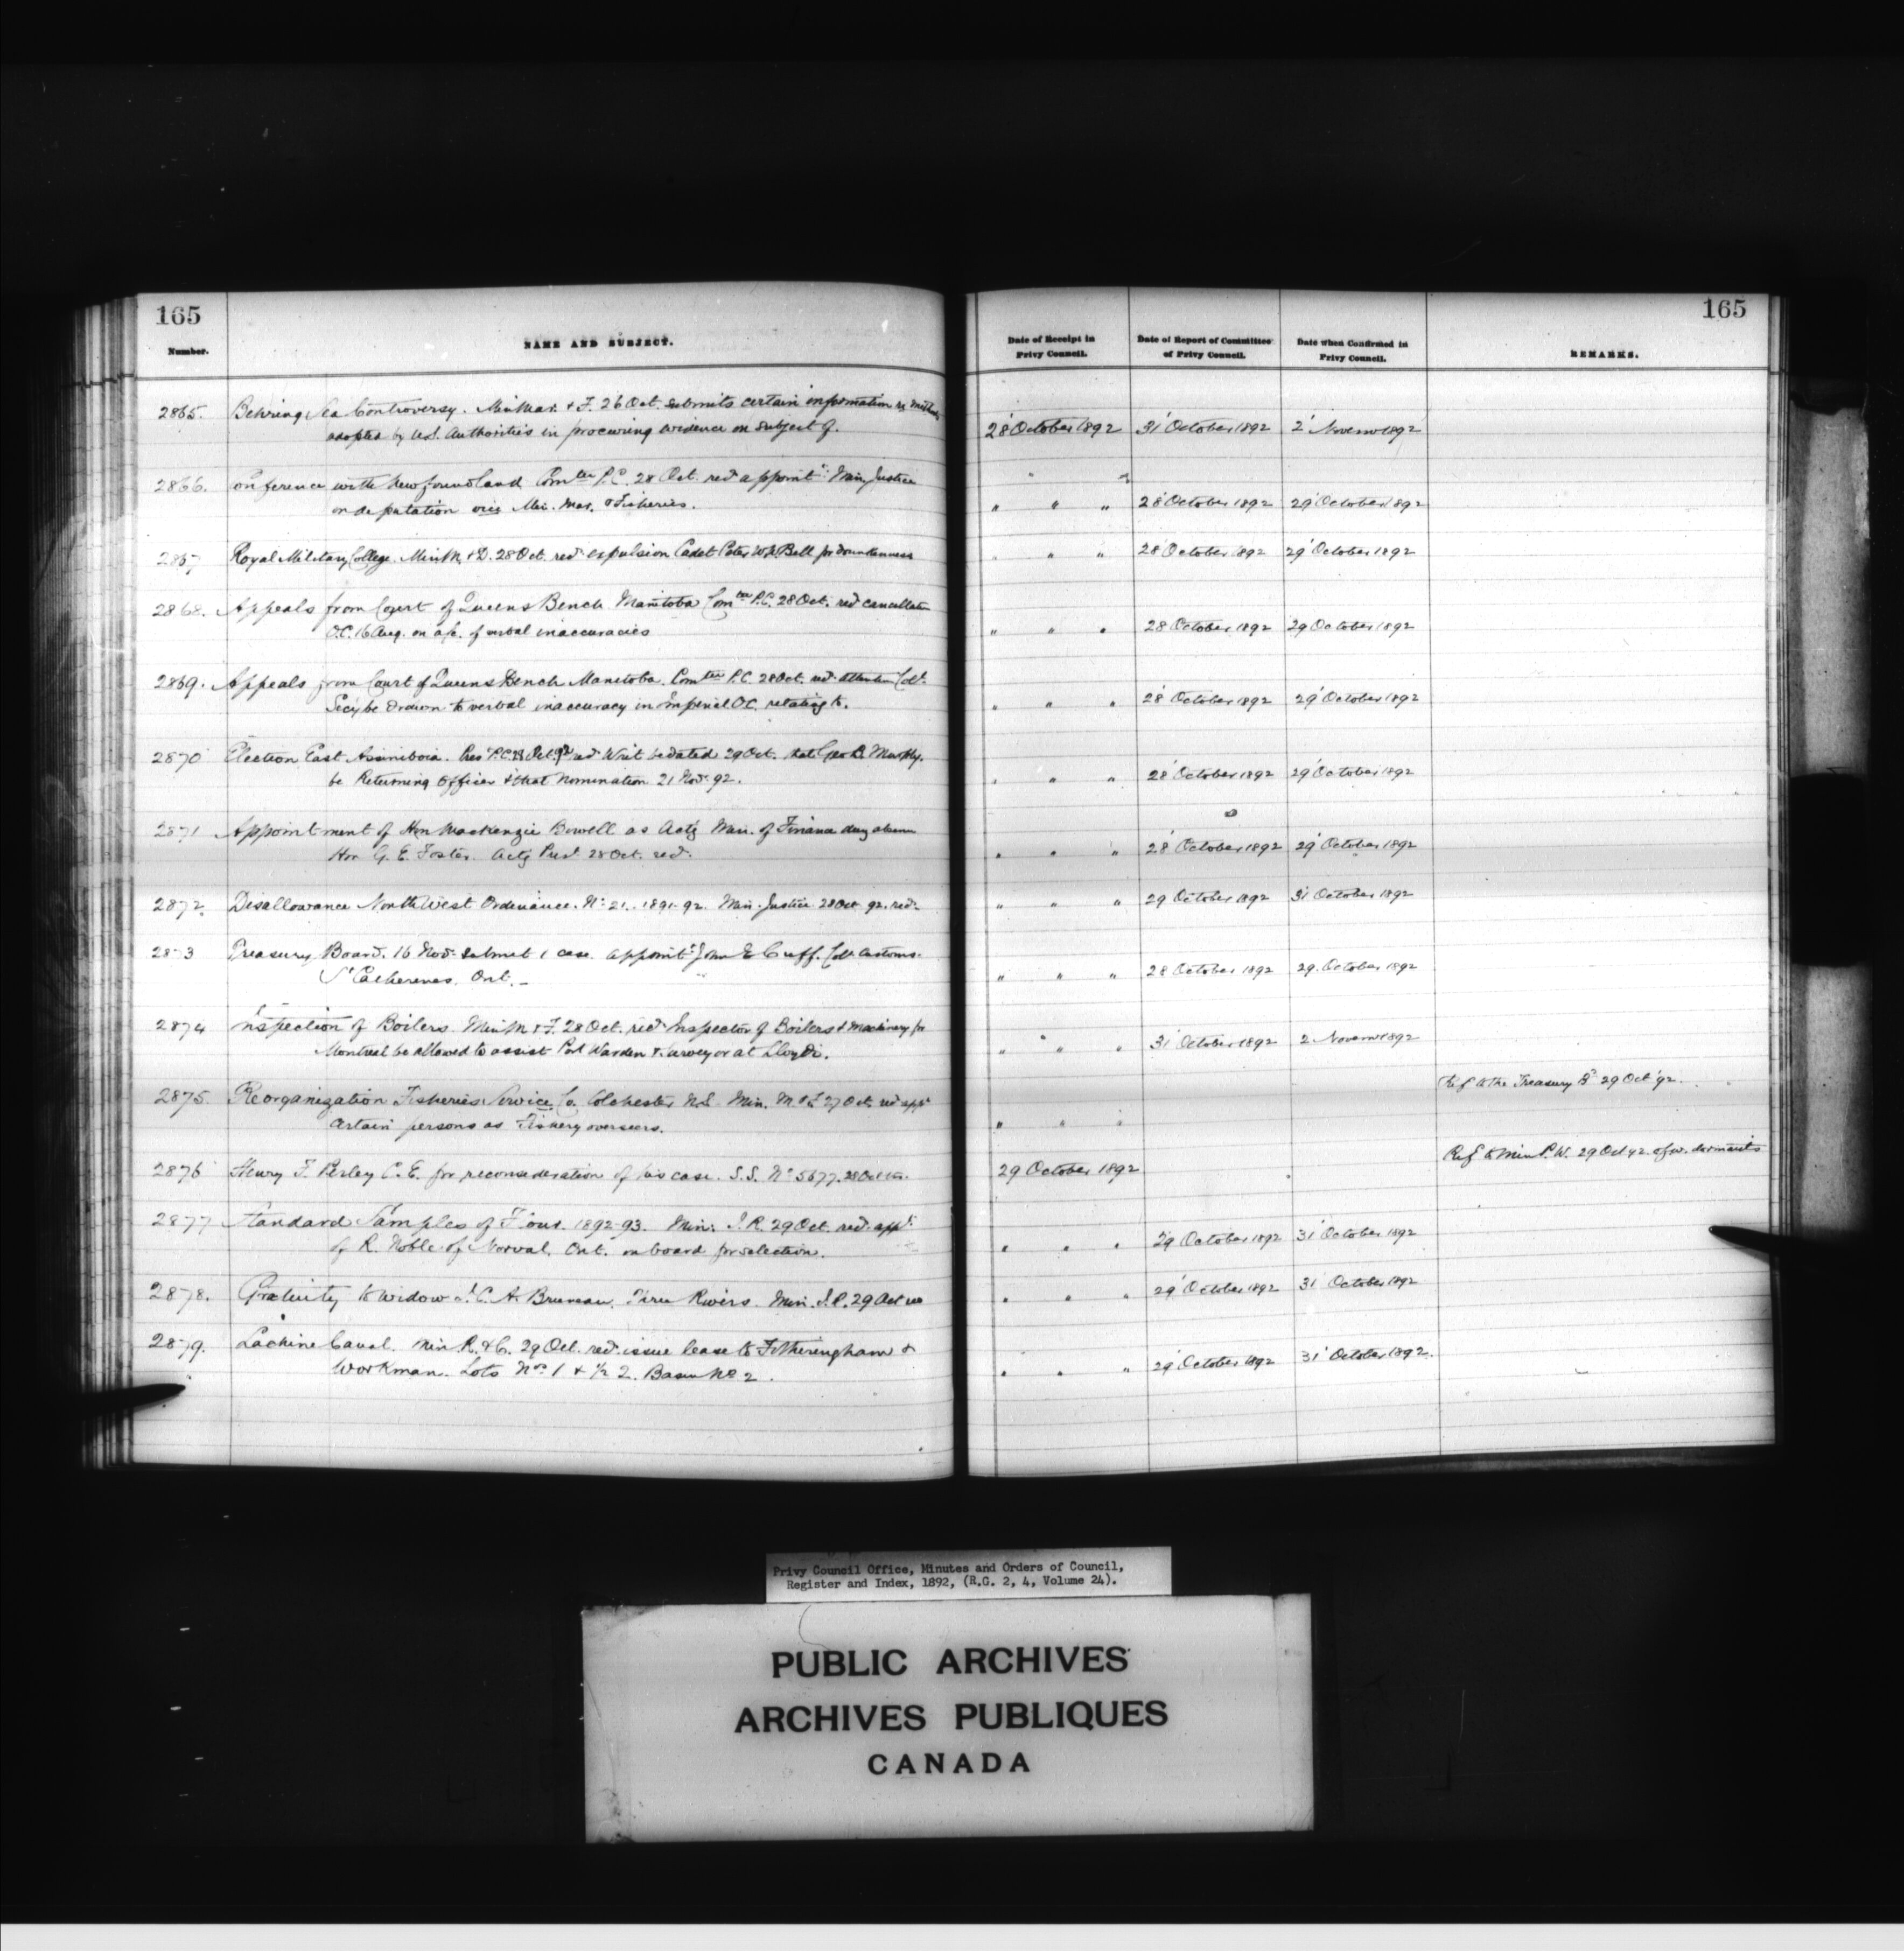 165
165
Number.
NAME AND SUBJECT.
Date of Receipt in Privy Council.
Date of Report of Committee of Privy Council.
Date when Confirmed in Privy Council.
REMARKS.
2865. Behring Sea Controversy. Min Mar. & F. 26 Oct. submits certain information re methods
adopted by U.S. Authorities in procuring evidence on subject of.
28 October 1892 31 October 1892 2 Novem 1892
2866. Conference with Newfoundland Comtee P.C. 28 Oct. recd appointt Min. Justice
on deputation vice Min. Mar. & Fisheries.
" " " 28 October 1892 29 October 1892
2867 Royal Military College. Min M. & D. 28 Oct. recd expulsion Cadet Bell for drunkenness
" " " 28 October 1892 29 October 1892
2868. Appeals from Court of Queens Bench Manitoba Comtee P.C. 28 Oct. recd cancellation
O.C. 16 Aug. on a/c. of verbal inaccuracies
" " " 28 October 1892 29 October 1892
2869. Appeals from Court of Queens Bench Manitoba. Comtee P.C. 28 Oct. recd attention Coll.
Secy be drawn to verbal inaccuracy in Imperial O.C. relating to.
" " " 28 October 1892 29 October 1892
2870 Election East Assiniboia. Pres P.C. 28 Oct. 92 recd Writ be dated 29 Oct. that Geo B. Murphy.
be Returning Officer & that Nomination 21 Nov. 92.
" " " 28 October 1892 29 October 1892
2871 Appointment of Hon Mackenzie Bowell as Actg Min. of Finance durg absence
Hon G. E. Foster. Actg Pres. 28 Oct. recd.
" " " 28 October 1892 29 October 1892
2872. Disallowance North West Ordinance. No 21. 1891-92. Min. Justice 28 Oct 92. recd.
" " " 29 October 1892 31 October 1892
2873 Treasury Board. 16 Nov. submit 1 case. appointt John E Cuff. Coll. Customs.
St Catherines. Ont.
" " " 28 October 1892 29 October 1892
2874 Inspection of Boilers. Min M & F. 28 Oct. recd Inspector of Boilers & Machinery for
Montreal be allowed to assist Port Warden & Surveyor at Lloyds.
" " " 31 October 1892 2 Novem 1892
2875. Reorganization Fisheries Service Co. Colchester N.S. Min. M. & F. 27 Oct. recd appt
certain persons as Fishery overseers.
" " " Ref to the Treasury Bd 29 Oct '92.
2876 Henry F. Perley C. E. for reconsideration of his case. S.S. No 5677. 28 Oct
29 October 1892 Ref to Min P. W. 29 Oct 92.
2877 Standard Samples of Flour. 1892-93. Min. I. R. 29 Oct. recd appt
of R. Noble of Norval. Ont. on board for selection.
" " " 29 October 1892 31 October 1892
2878. Gratuity to widow of C. A. Bruneau. Three Rivers. Min. I. R. 29 Oct
" " " 29 October 1892 31 October 1892
2879. Lachine Canal. Min R. & C. 29 Oct. recd issue lease to Fotheringham &
Workman. Lots Nos 1 & 1/2 2. Basin No 2.
" " " 29 October 1892 31 October 1892.
Privy Council Office, Minutes and Orders of Council,
Register and Index, 1892, (R.G. 2, 4, Volume 24).
PUBLIC ARCHIVES
ARCHIVES PUBLIQUES
CANADA